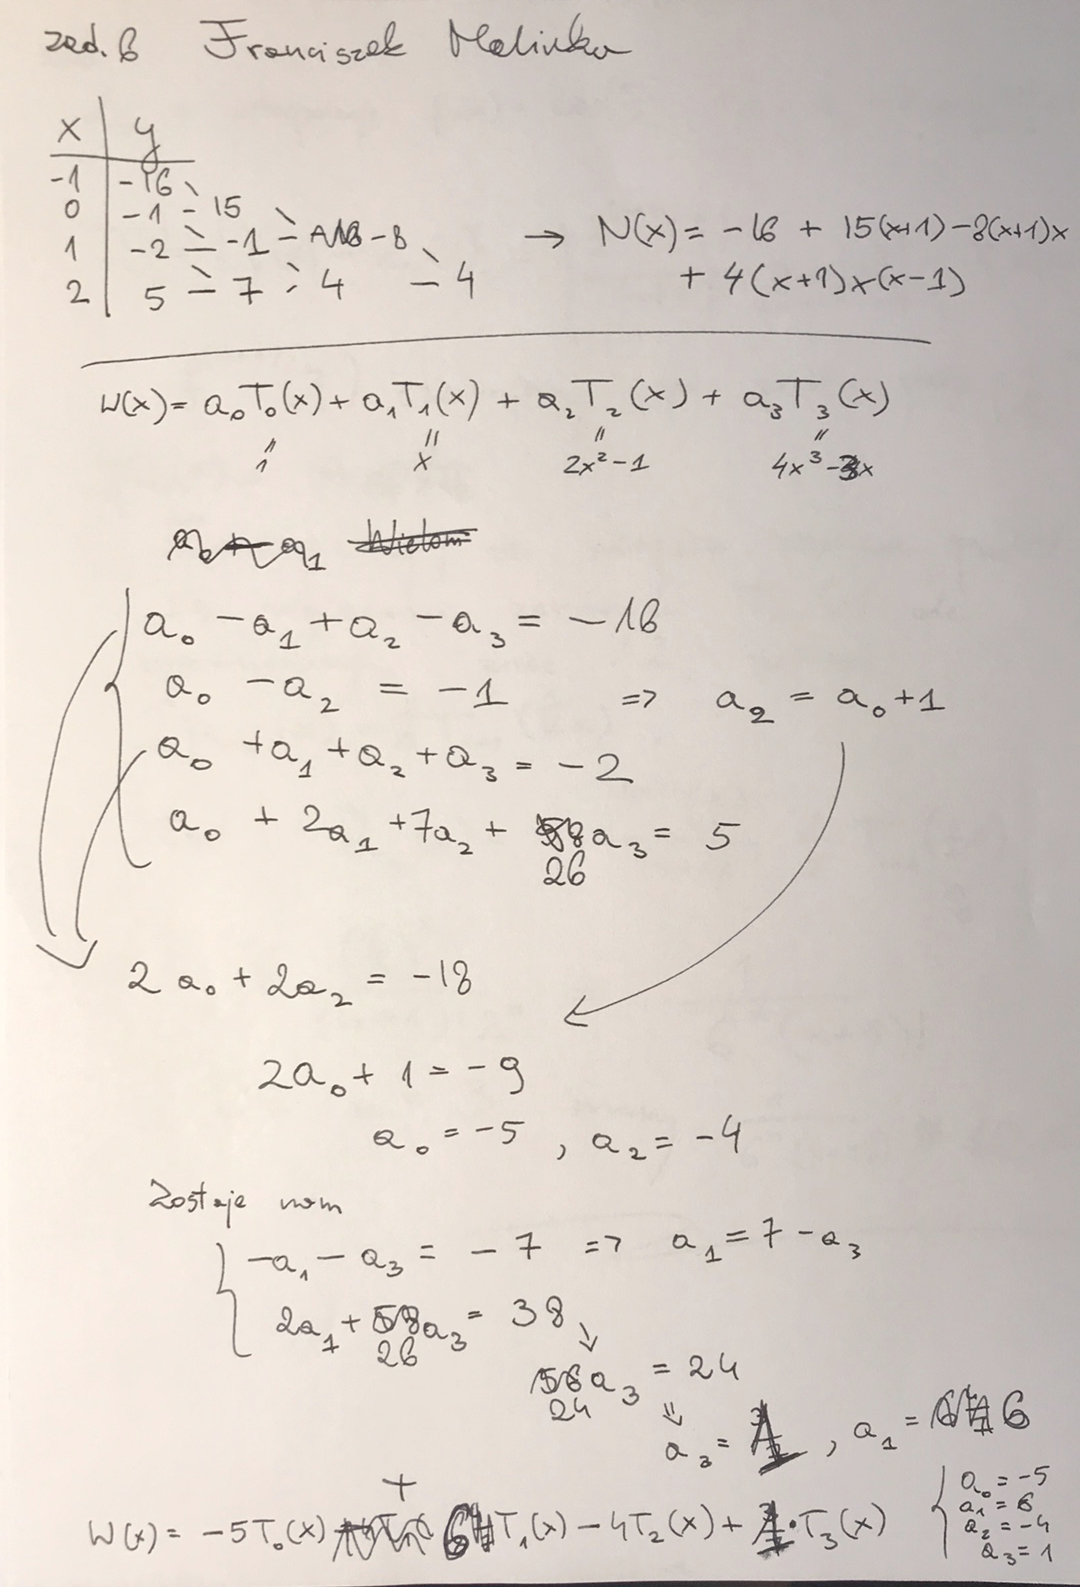 zad. 6 Franciszek Malinka
x | y
-1 | -16
0 | -1 - 15
1 | -2 - -1 - -8
2 | 5 - 7 - 4 - 4
→ N(x) = -16 + 15(x+1) - 8(x+1)x
+ 4(x+1)x(x-1)
W(x) = a₀T₀(x) + a₁T₁(x) + a₂T₂(x) + a₃T₃(x)
" " " "
1 x 2x²-1 4x³-3x
Wielom
a₀ - a₁ + a₂ - a₃ = -16
a₀ - a₂ = -1 => a₂ = a₀+1
a₀ + a₁ + a₂ + a₃ = -2
a₀ + 2a₁ + 7a₂ + 26 a₃ = 5
2a₀ + 2a₂ = -18
2a₀ + 1 = -9
a₀ = -5 , a₂ = -4
Zostaje nam
-a₁ - a₃ = -7 => a₁ = 7 - a₃
2a₁ + 26 a₃ = 38
24 a₃ = 24
a₃ = 1 , a₁ = 6
W(x) = -5T₀(x) + 6 T₁(x) - 4T₂(x) + 1·T₃(x)
a₀ = -5
a₁ = 6
a₂ = -4
a₃ = 1